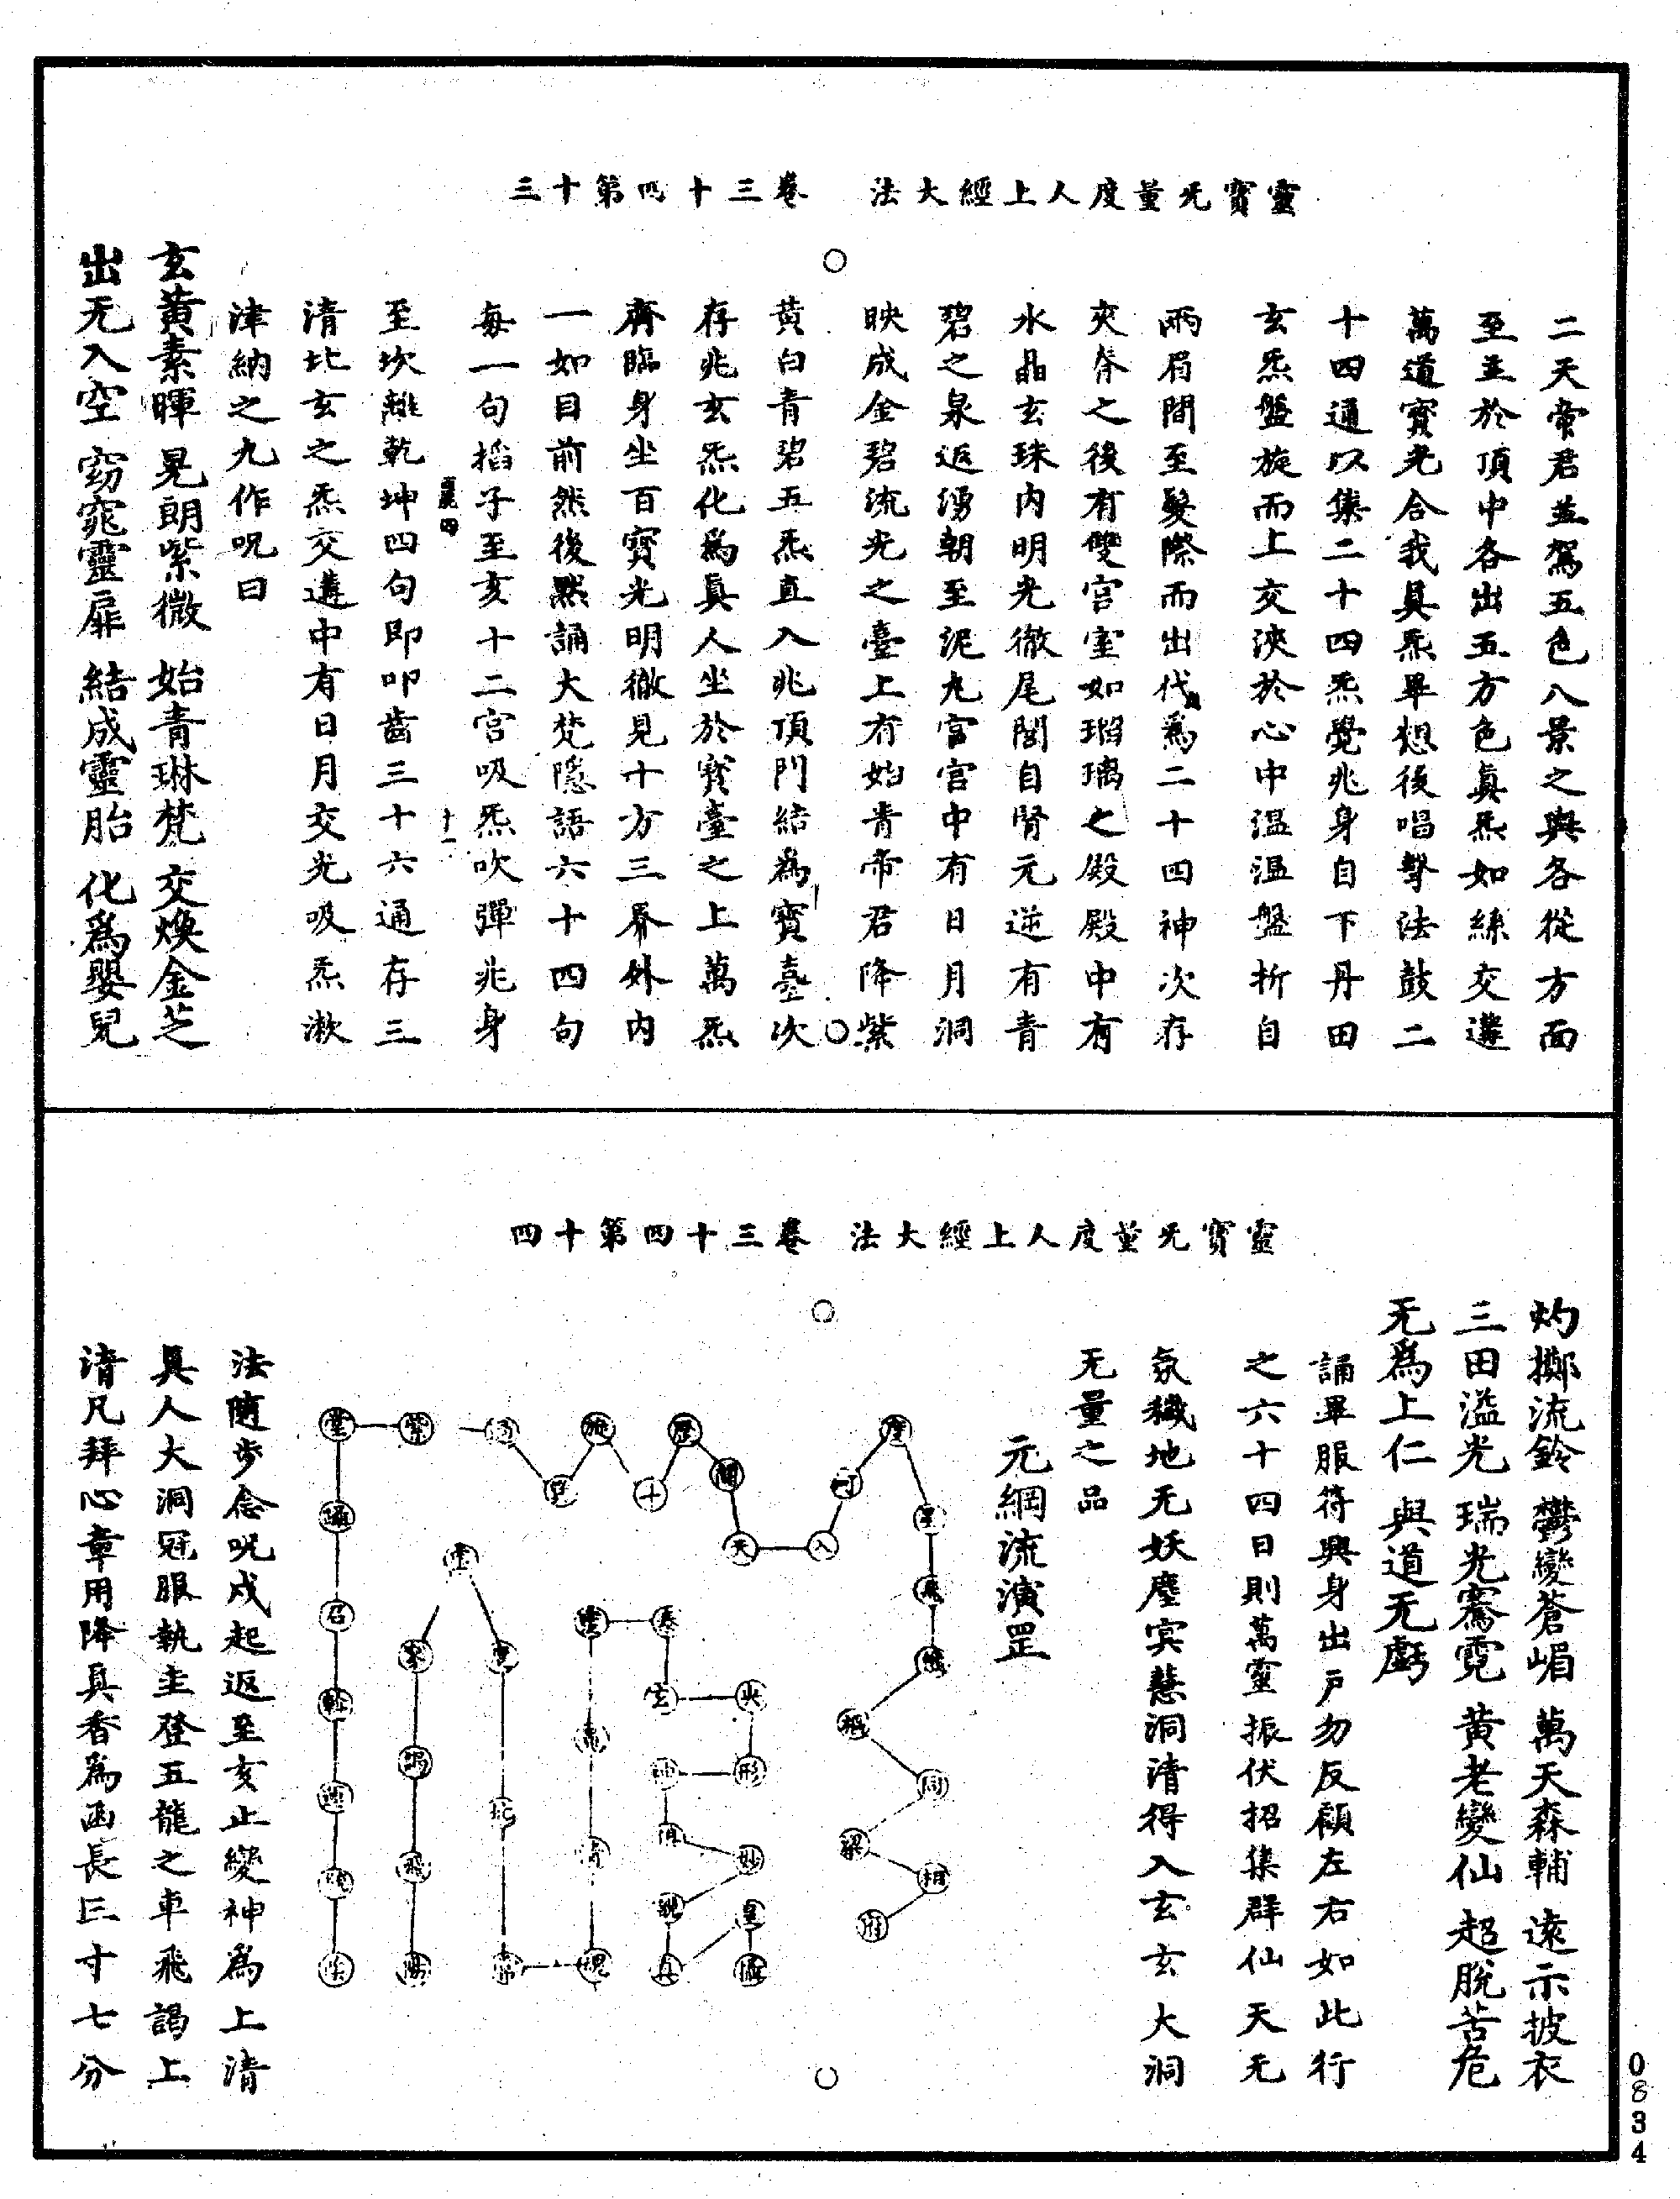 靈寶无量度人上經大法　卷三十四第十三
二天帝君並駕五色八景之輿各從方面
至並於頂中各出五方色真炁如絲交遘
萬道寳光合我真炁畢想後唱聲法鼓二
十四通以集二十四炁覺兆身自下丹田
玄炁盤旋而上交浹於心中温温盤折自
兩眉間至髮際而出代為二十四神次存
夾脊之後有雙宫室如瑠璃之殿殿中有
水晶玄珠内明光徹尾閭自腎元逆有青
碧之泉返湧朝至泥丸宫宫中有日月洞
映成金碧流光之臺上有始青帝君降紫
黄白青碧五炁直入兆頂門結為寳臺次
存兆玄炁化為真人坐於寳臺之上萬炁
齊臨身坐百寳光明徹見十方三界外内
一如目前然後黙誦大梵隱語六十四句
每一句搯子至亥十二宫吸炁吹彈兆身
至坎離乾坤四句即叩齒三十六通存三
清北玄之炁交遘中有日月交光吸炁漱
津納之九作呪曰
玄黄素暉 晃朗紫微 始青琳梵 交煥金芝
出无入空 窈窕靈扉 結成靈胎 化為嬰兒
靈寶无量度人上經大法　卷三十四第十四
灼擲流鈴 鬱變蒼嵋 萬天森輔 遠示披衣
三田溢光 瑞光騫霓 黄老變仙 超脱苦危
无為上仁 與道无虧
誦畢服符興身出戸勿反顧左右如此行
之六十四日則萬靈振伏招集群仙天无
氛穢地无妖塵㝠慧洞清得入玄玄大洞
无量之品
元綱流演罡
度 星
可
入
天
關
歷
十
施
同
形
央
玄
妙
皇
真
召
紫
法隨步念呪戌起返至亥止變神為上清
真人大洞冠服執圭登五龍之車飛謁上
清凡拜心章用降真香為函長三寸七分
0834